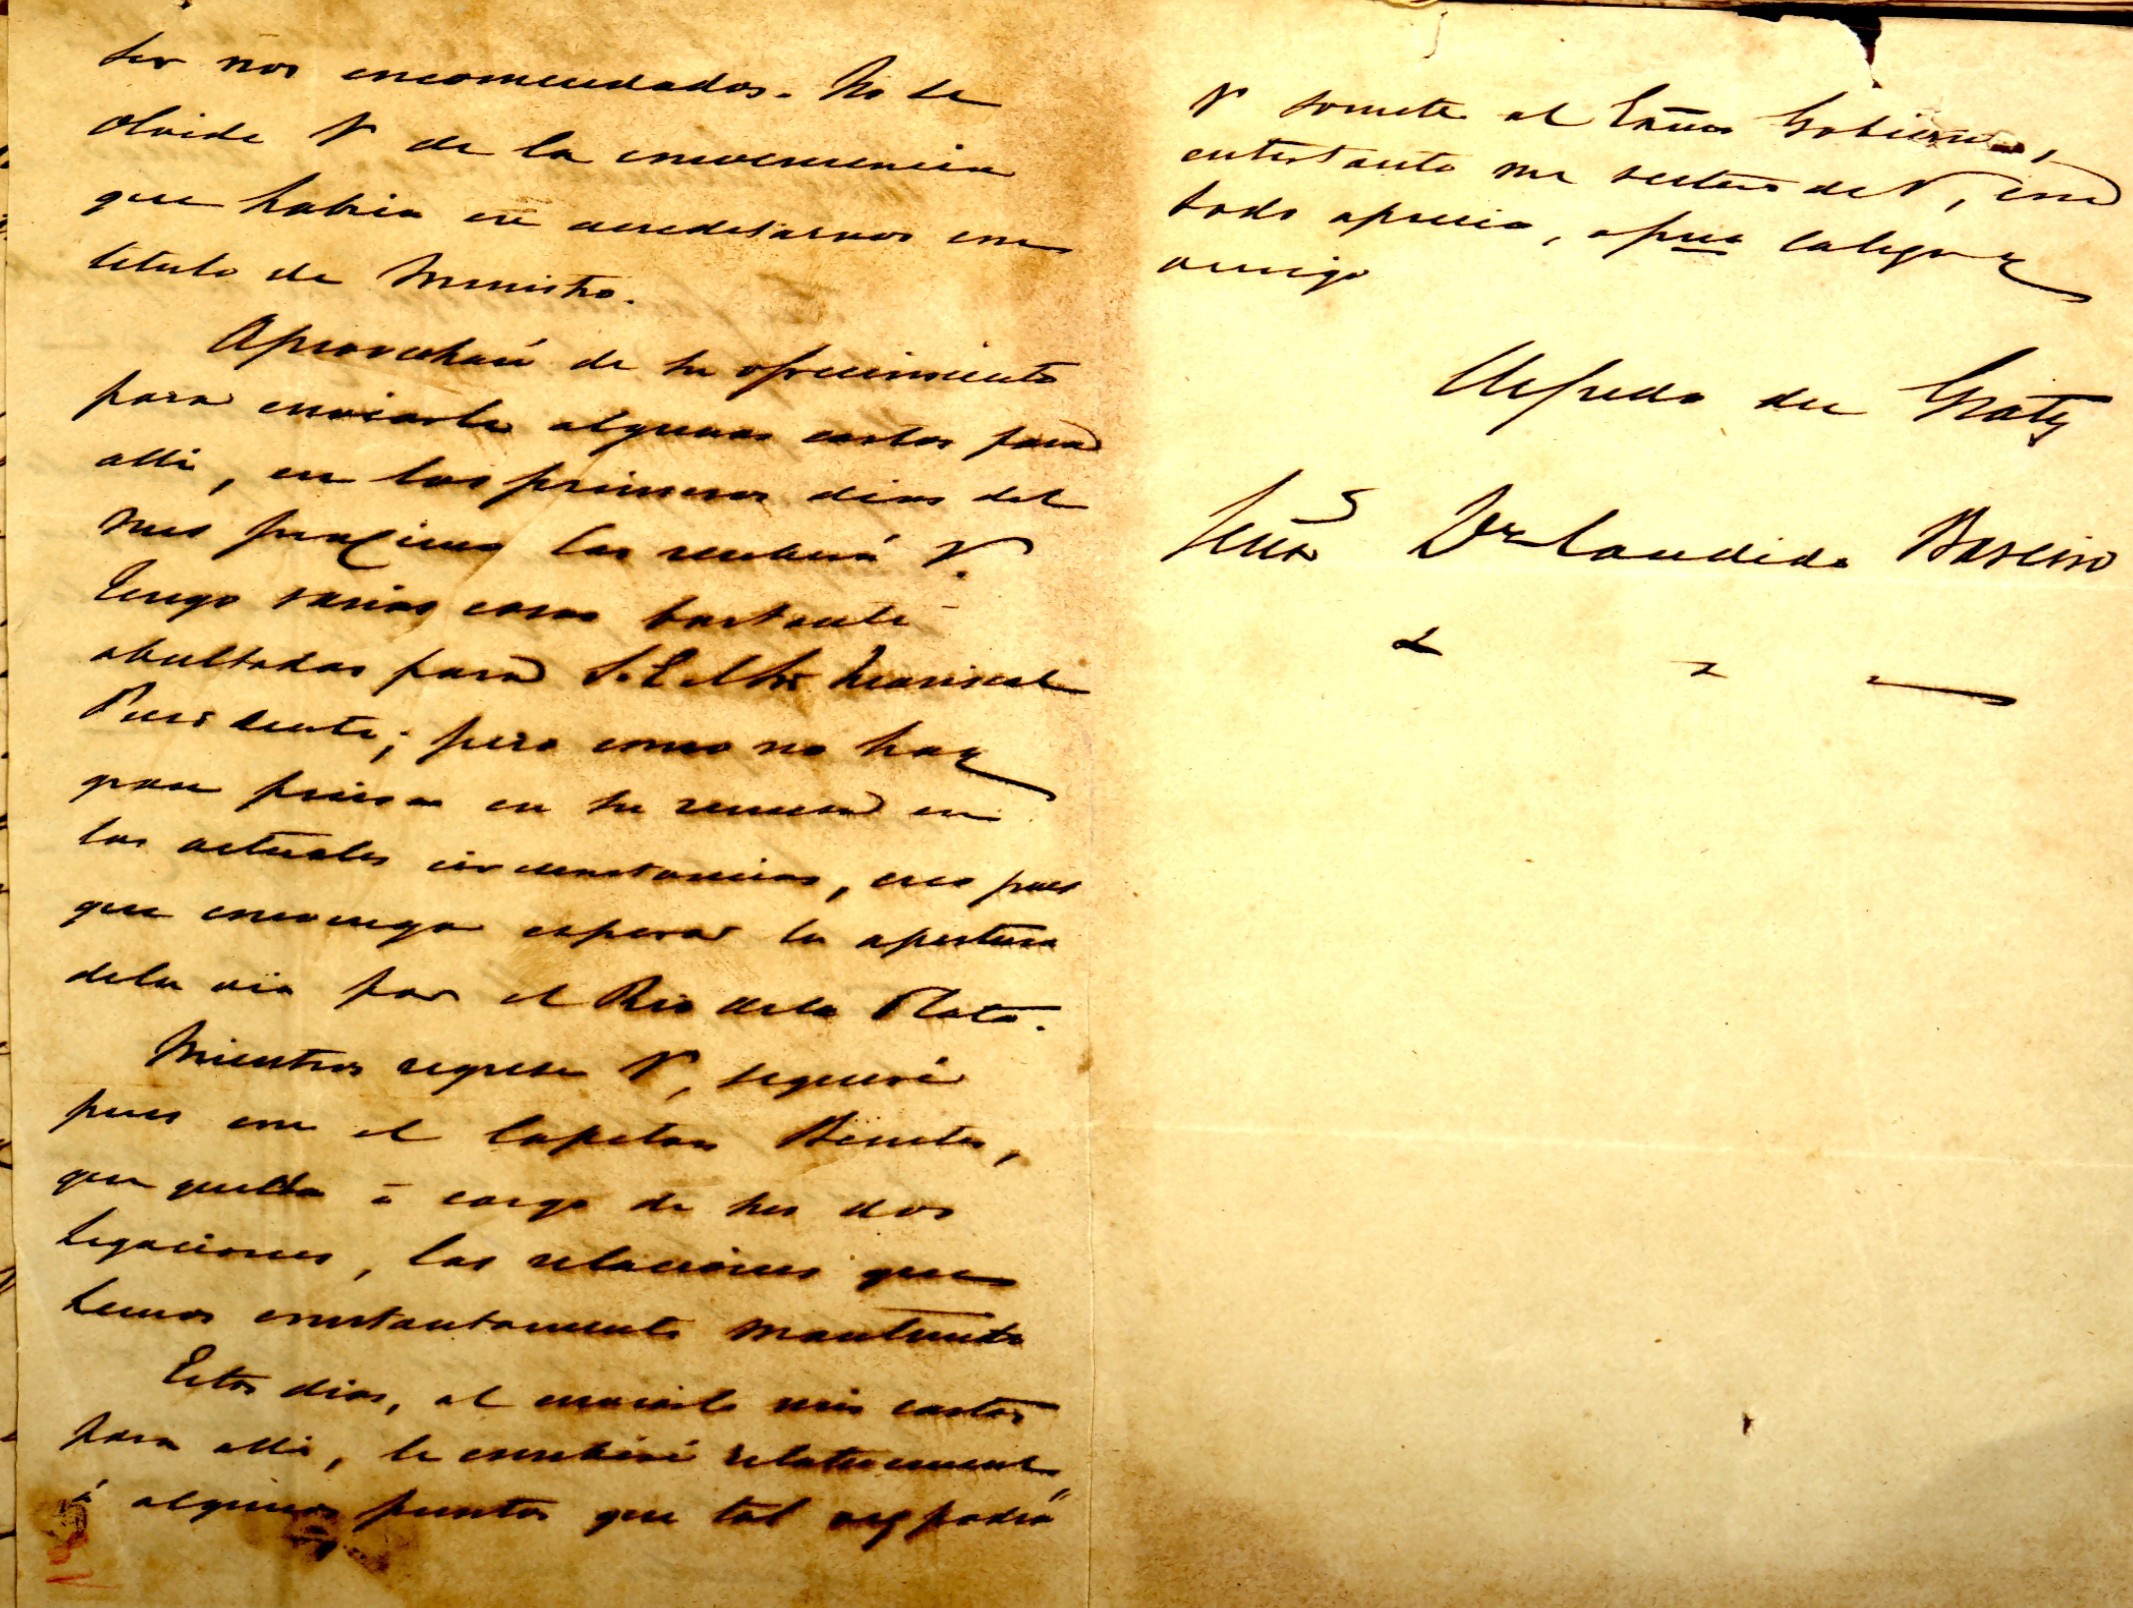 ser nos encomendados. No se
olvide V de la conveniencia
que habria en acreditarnos con
titulo de Ministro.
Aprovecharé de su ofrecimiento
para enviarle algunas cartas para
alli, en los primeros dias del
mes proximo las recibirá V.
Tengo varias cosas bastante
abultadas para S.E. el Sor Mariscal
Presidente; pero como no hay
gran priesa en su remesa en
las actuales circunstancias, creo pues
que convenga esperar la apertura
dela via por el Rio dela Plata.
Mientras regrese V, seguiré
pues con el Capitan Benites,
que queda á cargo de sus dos
Legaciones, las relaciones que
hemos constantemente mantenido
Estos dias, al enviarle mis cartas
para alli, le escribiré relativamente
á algunos puntos que tal vez podrá
V someter al Exmo Gobierno,
entretanto me reitero de V, con
todo aprecio, afmo colega y
amigo
Alfredo du Graty
Señor Dr Candido Bareiro